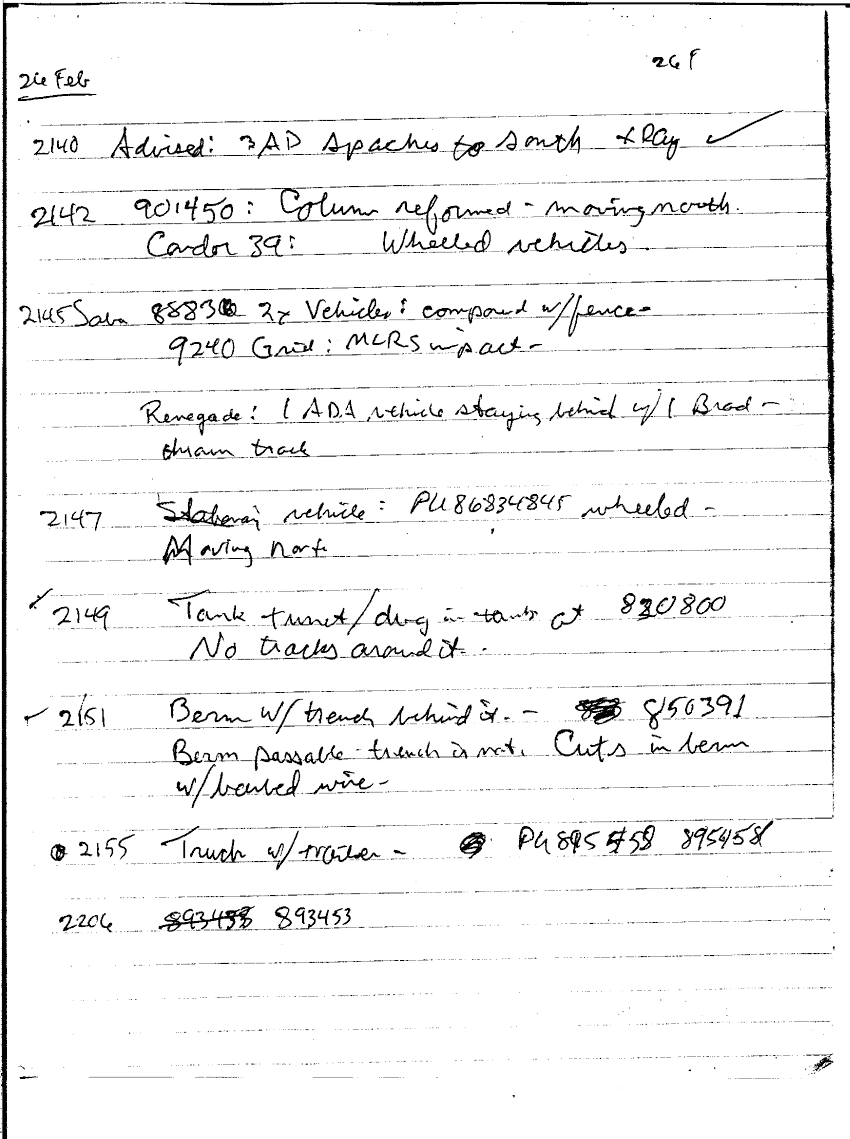 26 F
26 Feb
2140 Advised: 3AD Apaches to South XRay ✓
2142 901450: Column reformed - moving north.
Condor 39: Wheeled vehicles.
2145 88830 2x Vehicles: compound w/fence -
9240 Grid: MLRS impact -
Renegade: 1 ADA vehicle staying behind w/1 Brad -
track
2147 vehicle: PU86834845 wheeled -
Moving north
2149 Tank turret/dug in tank at 820800
No tracks around it.
✓ 2151 Berm w/ trench behind it. - 850391
Berm passable - trench is not. Cuts in berm
w/barbed wire -
2155 Truck w/trailer - PU895458 895458
2206 893458 893453